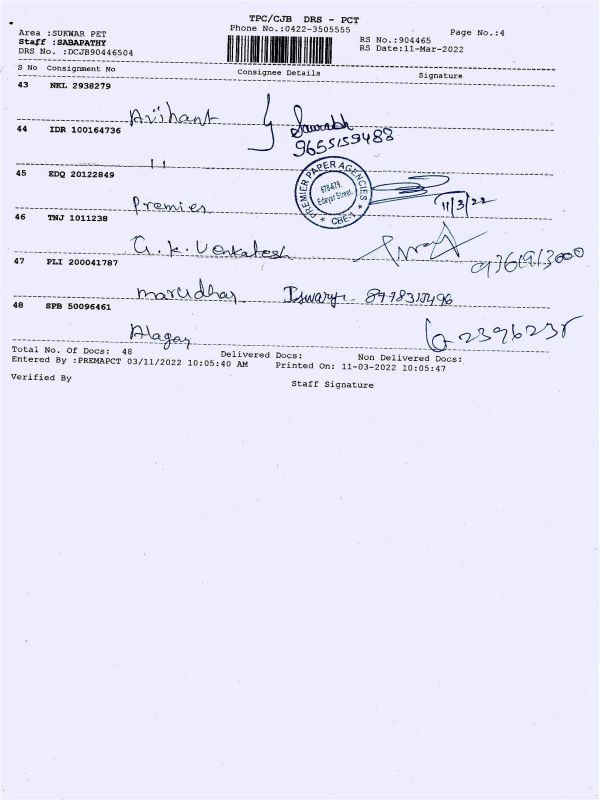 TPC/CJB DRS - PCT
Phone No.:0422-3505555
Page No.:4
Area :SUKWAR PET
RS No.:904465
Staff :SABAPATHY
RS Date:11-Mar-2022
DRS No. :DCJB90446504
S No Consignment No Consignee Details Signature
43 NKL 2938279
Arihant Saurabh
9655159488
44 IDR 100164736
45 EDQ 20122849
Premier
PREMIER PAPER AGENCIES
Edayar Street,
11/3/22
46 TNJ 1011238
G.K. Venkatesh
47 PLI 200041787
marudhar Iswarya
48 SPB 50096461
Alagar
Total No. Of Docs: 48 Delivered Docs: Non Delivered Docs:
Entered By :PREMAPCT 03/11/2022 10:05:40 AM Printed On: 11-03-2022 10:05:47
Verified By
Staff Signature